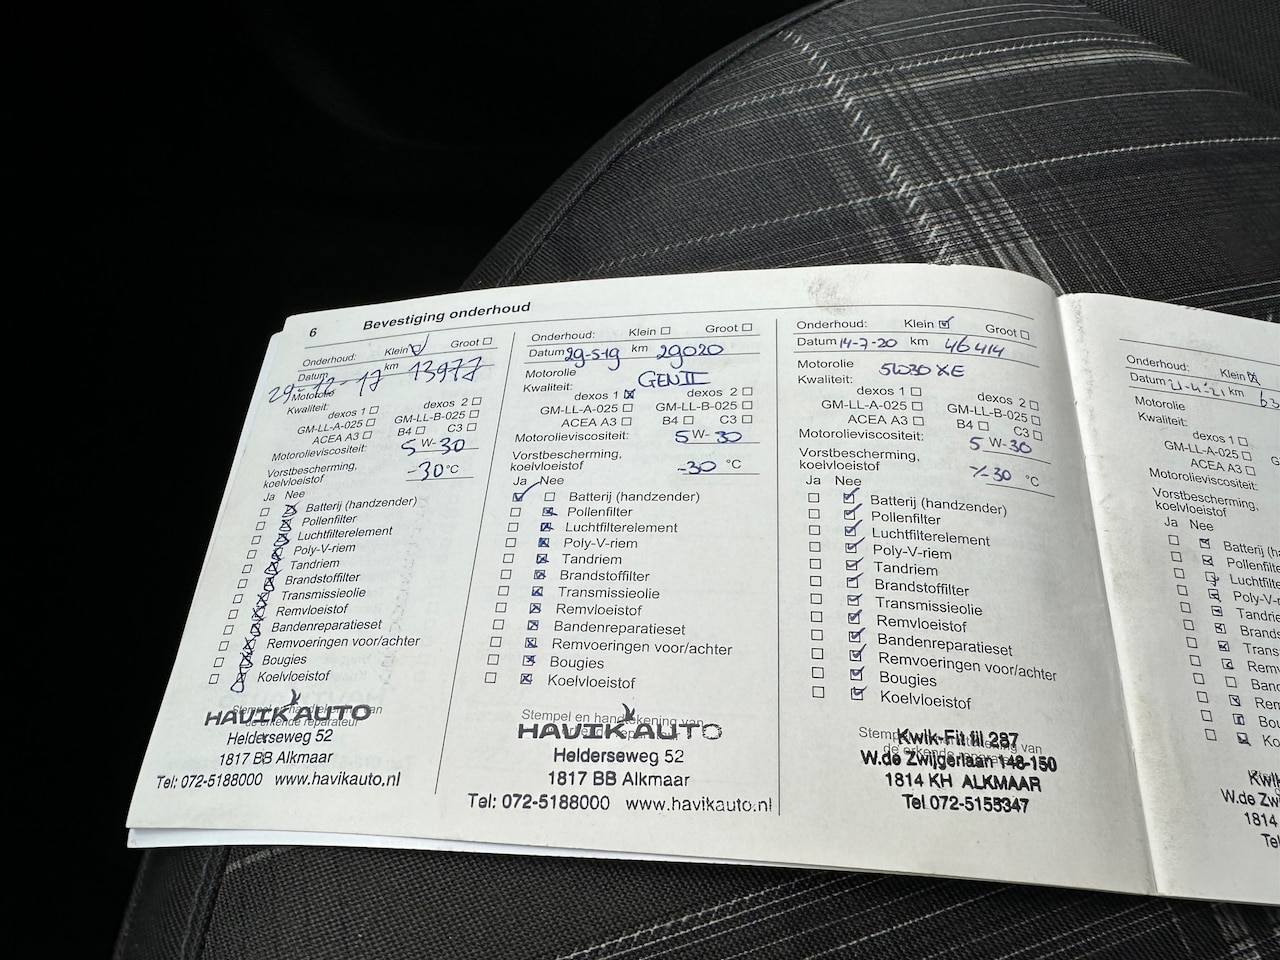 6 Bevestiging onderhoud
Onderhoud: Klein Groot
Datum 29-12-17 km 13977
Motorolie
Kwaliteit:
dexos 1 dexos 2
GM-LL-A-025 GM-LL-B-025
ACEA A3 B4 C3
Motorolieviscositeit: 5 W-30
Vorstbescherming,
koelvloeistof -30 °C
Ja Nee
Batterij (handzender)
Pollenfilter
Luchtfilterelement
Poly-V-riem
Tandriem
Brandstoffilter
Transmissieolie
Remvloeistof
Bandenreparatieset
Remvoeringen voor/achter
Bougies
Koelvloeistof
Stempel en handtekening van
de erkende reparateur
HAVIK AUTO
Helderseweg 52
1817 BB Alkmaar
Tel: 072-5188000 www.havikauto.nl
Onderhoud: Klein Groot
Datum 29-5-19 km 29020
Motorolie
Kwaliteit: GEN II
dexos 1 dexos 2
GM-LL-A-025 GM-LL-B-025
ACEA A3 B4 C3
Motorolieviscositeit: 5 W-30
Vorstbescherming,
koelvloeistof -30 °C
Ja Nee
Batterij (handzender)
Pollenfilter
Luchtfilterelement
Poly-V-riem
Tandriem
Brandstoffilter
Transmissieolie
Remvloeistof
Bandenreparatieset
Remvoeringen voor/achter
Bougies
Koelvloeistof
Stempel en handtekening van
HAVIK AUTO
Helderseweg 52
1817 BB Alkmaar
Tel: 072-5188000 www.havikauto.nl
Onderhoud: Klein Groot
Datum 14-7-20 km 46414
Motorolie
Kwaliteit:
dexos 1 dexos 2
GM-LL-A-025 GM-LL-B-025
ACEA A3 B4 C3
Motorolieviscositeit: 5 W-30
Vorstbescherming,
koelvloeistof -30 °C
Ja Nee
Batterij (handzender)
Pollenfilter
Luchtfilterelement
Poly-V-riem
Tandriem
Brandstoffilter
Transmissieolie
Remvloeistof
Bandenreparatieset
Remvoeringen voor/achter
Bougies
Koelvloeistof
Kwik-Fit fil 287
W.de Zwijgerlaan 148-150
1814 KH ALKMAAR
Tel 072-5155347
Onderhoud: Klein
Datum km
Motorolie
Kwaliteit:
dexos 1
GM-LL-A-025
ACEA A3
Motorolieviscositeit:
Vorstbescherming,
koelvloeistof
Ja Nee
Batterij (ha
Pollenfilte
Luchtfilte
Poly-V-r
Tandrie
Brands
Trans
Remv
Band
Rem
Bou
Ko
Kwik
W.de Zw
1814
Tel